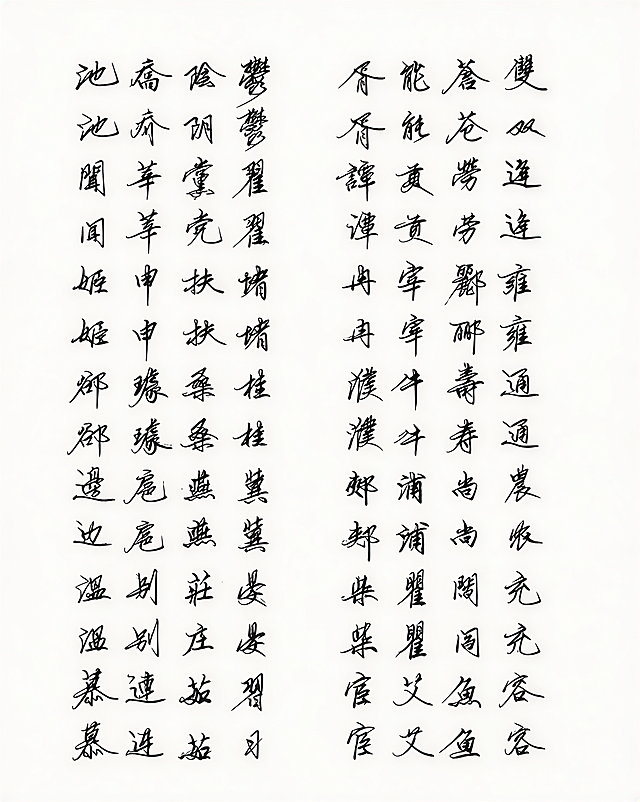 池喬陰鬱 胥能蒼雙
池乔阴鬱 胥能苍双
聞莘黨翟 譚貢勞逄
闻莘党翟 谭贡劳逄
姬申扶堵 冉宰酈雍
姬申扶堵 冉宰郦雍
郤璩桑桂 濮牛壽通
郤璩桑桂 濮牛寿通
邊扈燕冀 郟浦尚農
边扈燕冀 郏浦尚农
溫別莊晏 柴瞿閻充
温别庄晏 柴瞿阎充
慕連茹習 宦艾魚容
慕连茹习 宦艾鱼容